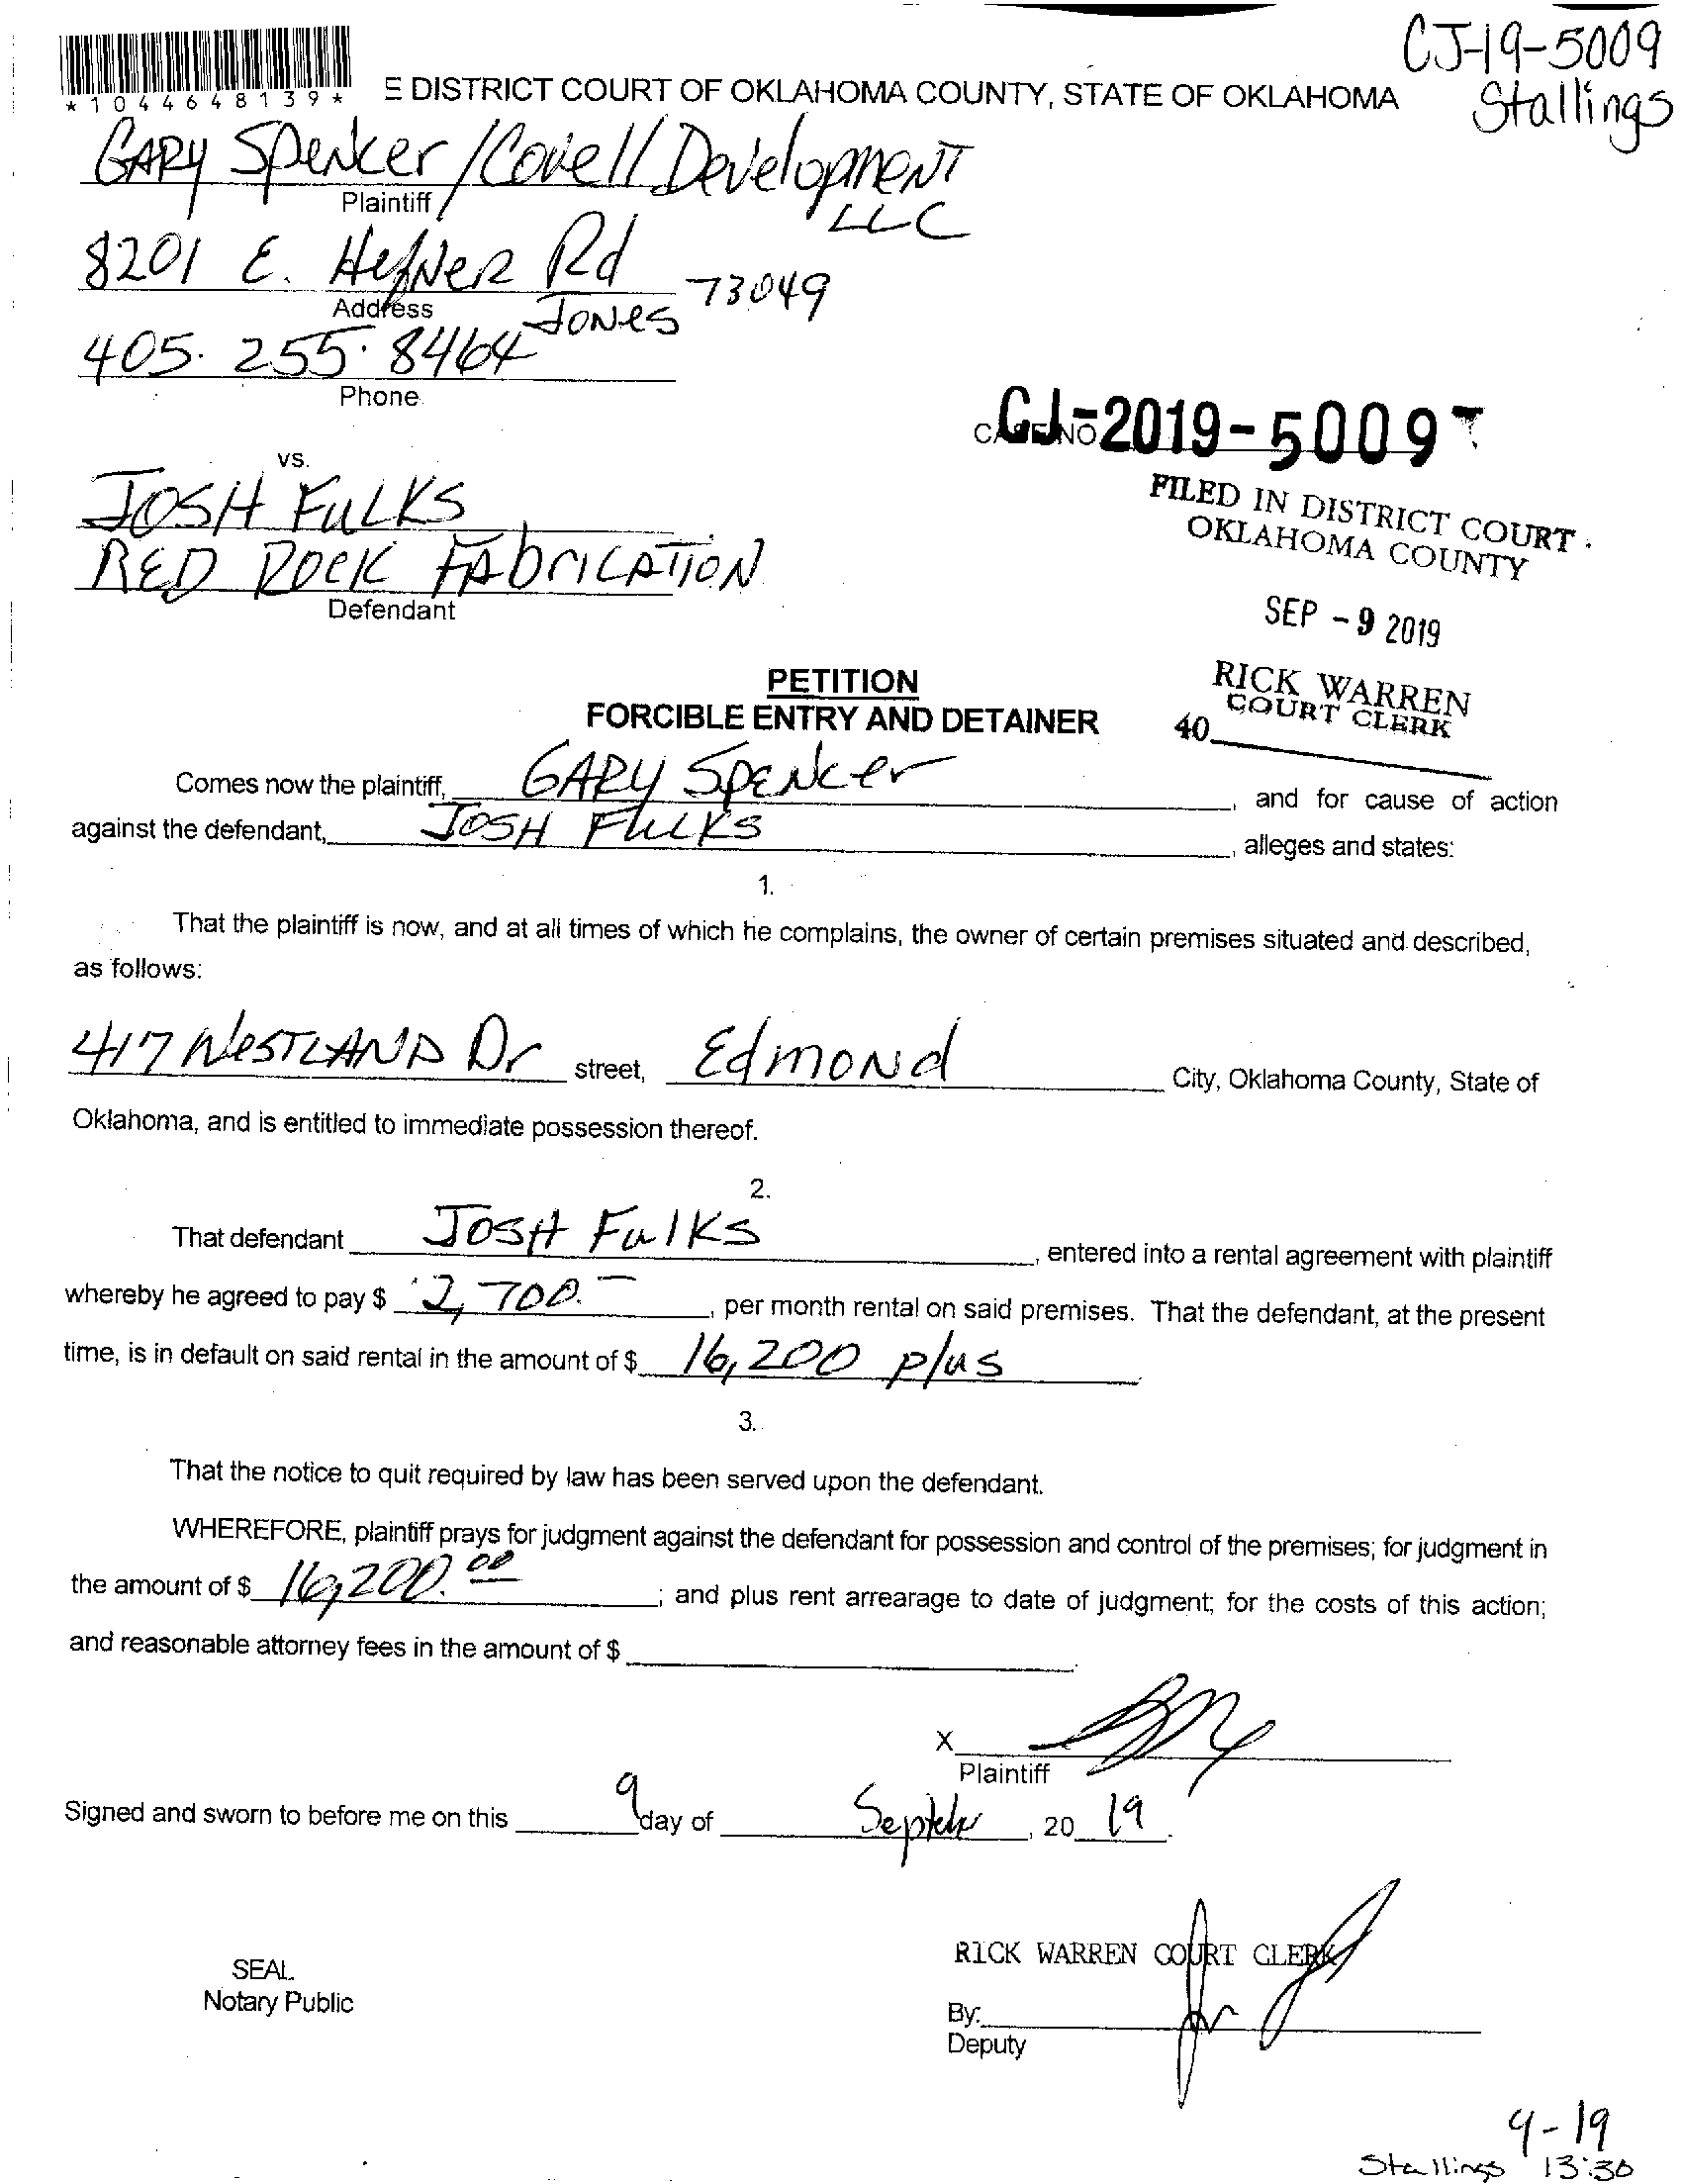 CJ-19-5009
Stallings
*1044648139*
E DISTRICT COURT OF OKLAHOMA COUNTY, STATE OF OKLAHOMA
GARY Spencer / Covell Development
LLC
Plaintiff
8201 E. Hefner Rd
Address
Jones 73049
405. 255. 8464
Phone
CASE NO CJ-2019-5009
vs.
JOSH FULKS
RED ROCK FABRICATION
Defendant
FILED IN DISTRICT COURT
OKLAHOMA COUNTY
SEP - 9 2019
RICK WARREN
COURT CLERK
40
PETITION
FORCIBLE ENTRY AND DETAINER
Comes now the plaintiff, GARY Spencer, and for cause of action
against the defendant, JOSH FULKS, alleges and states:
1.
That the plaintiff is now, and at all times of which he complains, the owner of certain premises situated and described,
as follows:
417 WESTLAND Dr street, Edmond City, Oklahoma County, State of
Oklahoma, and is entitled to immediate possession thereof.
2.
That defendant JOSH FulKS, entered into a rental agreement with plaintiff
whereby he agreed to pay $ 2,700.-, per month rental on said premises. That the defendant, at the present
time, is in default on said rental in the amount of $ 16,200 plus.
3.
That the notice to quit required by law has been served upon the defendant.
WHEREFORE, plaintiff prays for judgment against the defendant for possession and control of the premises; for judgment in
the amount of $ 16,200.00; and plus rent arrearage to date of judgment; for the costs of this action;
and reasonable attorney fees in the amount of $
X
Plaintiff
Signed and sworn to before me on this 9 day of September, 20 19.
SEAL
Notary Public
RICK WARREN COURT CLERK
By:
Deputy
9-19
Stallings 13:30